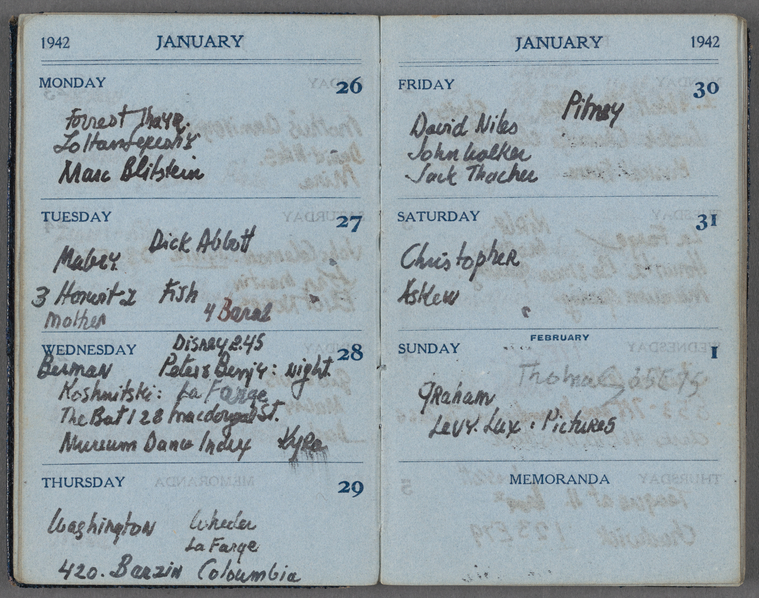 1942 JANUARY
MONDAY 26
Forrest Thayr.
Marc Blitstein
TUESDAY 27
Dick Abbott
Mabry
3 Horwit-z Fish
Mother 4 Baral
Disney 2.45
WEDNESDAY 28
Berman Peter & Benjy: night.
Koshnitski: La Farge
The Bat 128 Macdougal St.
Museum Dance Index Kyra
THURSDAY 29
Washington Wheeler
La Farge
420. Barzin Coloumbia
JANUARY 1942
FRIDAY 30
Pitney
David Niles
John Walker
Jack Thacher
SATURDAY 31
Christopher
Askew
FEBRUARY
SUNDAY 1
Thomas
Graham
Levy. Lux: Pictures
MEMORANDA